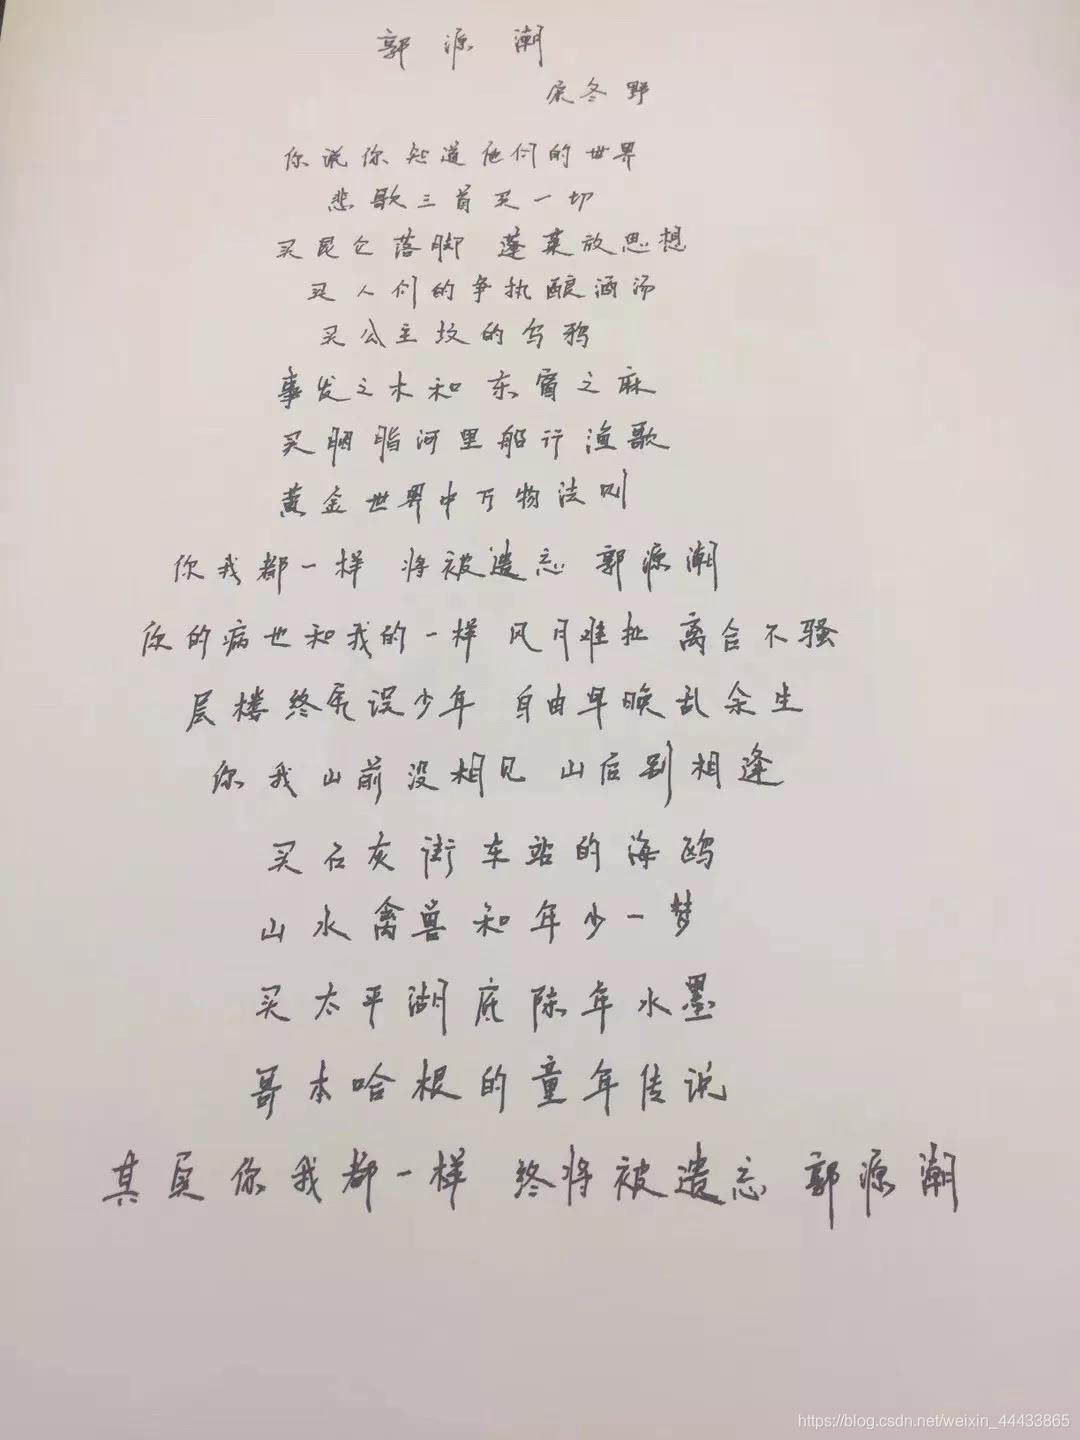 郭源潮
宋冬野
你说你知道他们的世界
悲歌三首买一切
买昆仑落脚 蓬莱放思想
买人们的争执酿酒汤
买公主坟的乌鸦
事发之木和东窗之麻
买胭脂河里船行渔歌
黄金世界中万物法则
你我都一样 将被遗忘 郭源潮
你的病也和我的一样 风月难扯 离合不骚
层楼终究误少年 自由早晚乱余生
你我山前没相见 山后别相逢
买石灰街车站的海鸥
山水禽兽和年少一梦
买太平湖底陈年水墨
哥本哈根的童年传说
其实你我都一样 终将被遗忘 郭源潮
https://blog.csdn.net/weixin_44433865